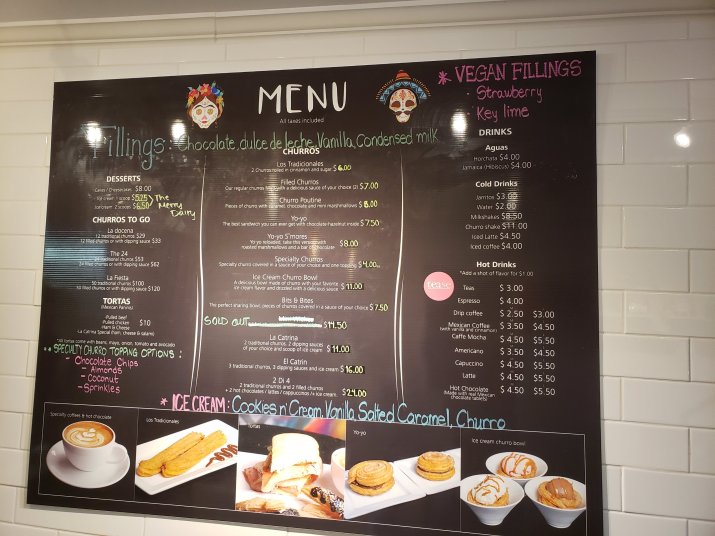 MENU
All taxes included
Fillings: Chocolate, dulce de leche, Vanilla, Condensed milk
* VEGAN FILLINGS
- Strawberry
Key lime
DESSERTS
Cakes / Cheesecakes $8.00
Ice cream 1 scoop $5.25
Ice cream 2 scoops $6.50
The Merry Dairy
CHURROS TO GO
La docena
12 traditional churros $29
12 filled churros or with dipping sauce $33
The 24
24 traditional churros $53
24 filled churros or with dipping sauce $62
La Fiesta
50 traditional churros $100
50 filled churros or with dipping sauce $120
TORTAS
(Mexican Paninis)
Pulled beef
Pulled chicken $10
Ham & Cheese
La Catrina Special (ham, cheese & salami)
*All tortas come with beans, mayo, onion, tomato and avocado
** SPECIALTY CHURRO TOPPING OPTIONS:
- Chocolate Chips
- Almonds
- Coconut
- Sprinkles
CHURROS
Los Tradicionales
2 Churros rolled in cinnamon and sugar $6.00
Filled Churros
Our regular churros filled with a delicious sauce of your choice (2) $7.00
Churro Poutine
Pieces of churro with caramel, chocolate and mini marshmallows $8.00
Yo-yo
The best sandwich you can ever get with chocolate-hazelnut inside $7.50
Yo-yo S'mores
Yo-yo reloaded, take this version with
toasted marshmallows and a bar of chocolate $8.00
Specialty Churros
Specialty churro covered in a sauce of your choice and one topping $4.00
Ice Cream Churro Bowl
A delicious bowl made of churro with your favorite
ice cream flavor and drizzled with a delicious sauce $11.00
Bits & Bites
The perfect sharing bowl, pieces of churros covered in a sauce of your choice $7.50
SOLD OUT $14.50
La Catrina
2 traditional churros, 2 dipping sauces
of your choice and scoop of ice cream $11.00
El Catrin
3 traditional churros, 3 dipping sauces and ice cream $16.00
2 Di 4
2 traditional churros and 2 filled churros
+ 2 hot chocolates / lattes / cappuccinos /+ ice cream $24.00
* ICE CREAM: Cookies n' Cream, Vanilla, Salted Caramel, Churro
DRINKS
Aguas
Horchata $4.00
Jamaica (Hibiscus) $4.00
Cold Drinks
Jarritos $3.00
Water $2.00
Milkshakes $8.50
Churro shake $11.00
Iced Latte $4.50
Iced coffee $4.00
Hot Drinks
*Add a shot of flavor for $1.00
tease
Teas $ 3.00
Espresso $ 4.00
Drip coffee $ 2.50 $3.00
Mexican Coffee $ 3.50 $4.50
(with vanilla and cinnamon)
Caffe Mocha $ 4.50 $5.50
Americano $ 3.50 $4.50
Capuccino $ 4.50 $5.50
Latte $ 4.50 $5.50
Hot Chocolate $ 4.50 $5.50
(Made with real Mexican
chocolate tablets)
Specialty coffees & hot chocolate
Los Tradicionales
Tortas
Yo-yo
Ice cream churro bowl